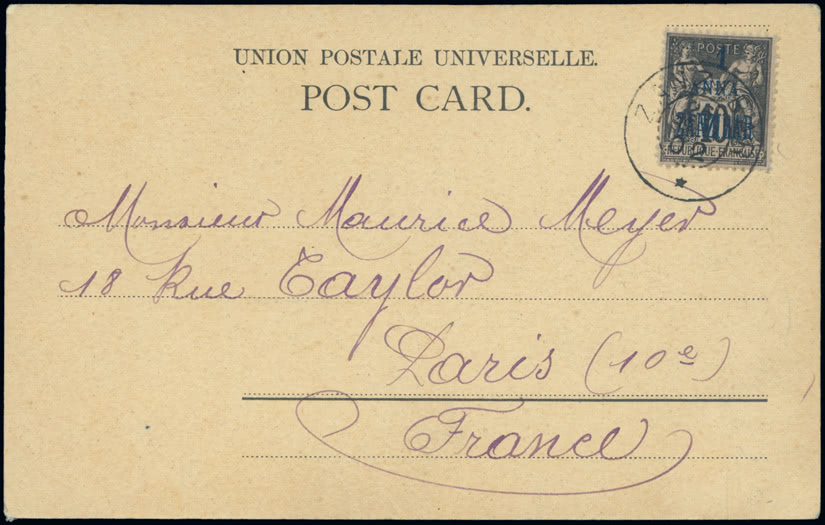 UNION POSTALE UNIVERSELLE.
POST CARD.
POSTE
1
ANNA
ZANZIBAR
10
REPUBLIQUE FRANÇAISE
02
Monsieur Maurice Meyer
18 Rue Taylor
Paris (10e)
France